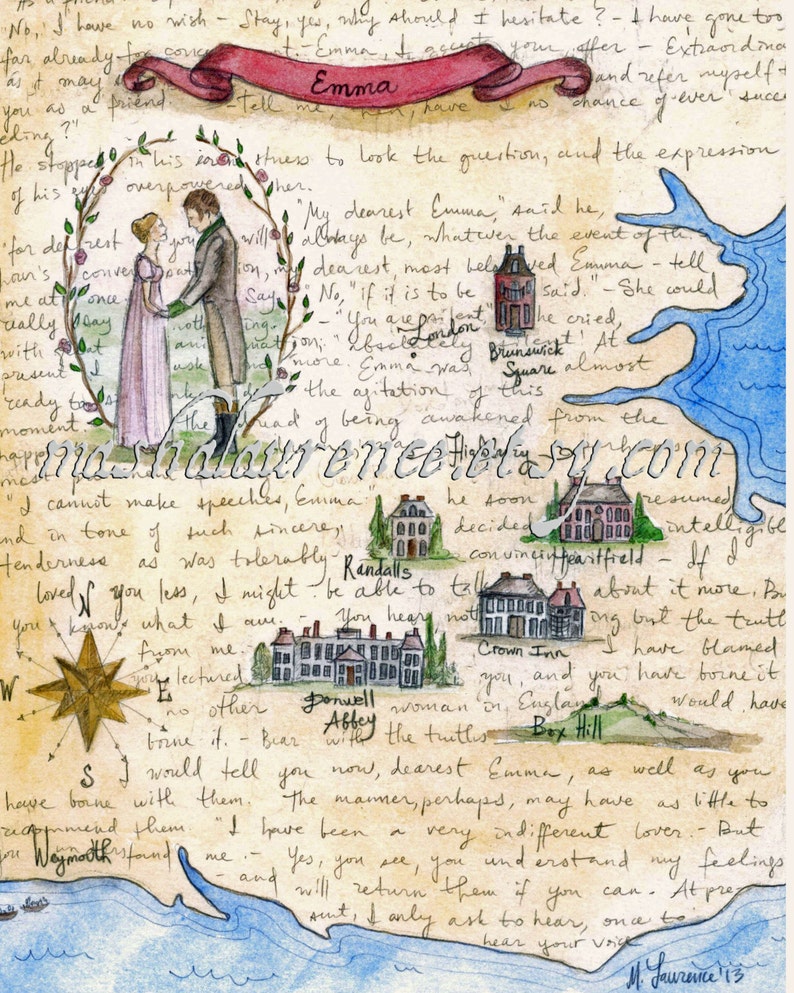 As a friend
No, I have no wish – Stay, yes, why should I hesitate? – I have gone too
far already for conc t. – Emma, I accept your offer – Extraordina
as it may s and refer myself t
you as a friend. – tell me, then, have I no chance of ever succe
eding?"
He stopped in his earnestness to look the question, and the expression
of his eyes overpowered her.
Emma
"My dearest Emma," said he,
"for dearest you will always be, whatever the event of th
hour's conversation, my dearest, most beloved Emma – tell
me at once. Say "No," if it is to be said." – She could
really say nothing. – "You are silent," he cried,
with great animation; "absolutely silent! At
present I ask no more." Emma was almost
ready to sink under the agitation of this
moment. The dread of being awakened from the
happ
most
"I cannot make speeches, Emma:" he soon resumed
nd in tone of such sincere, decided, intelligible
tenderness as was tolerably convincing – If I
loved you less, I might be able to talk about it more. But
you know what I am. – You hear nothing but the truth
from me. – I have blamed
you, lectured you, and you have borne it
no other woman in England would have
borne it. – Bear with the truths
I would tell you now, dearest Emma, as well as you
have borne with them. The manner, perhaps, may have as little to
recommend them. "I have been a very indifferent lover. – But
you understand me. – Yes, you see, you understand my feelings
– and will return them if you can. At pre
sent, I only ask to hear, once to
hear your voice
London
Brunswick
Square
Highbury
Randalls
Hartfield
Crown Inn
Donwell
Abbey
Box Hill
Weymouth
N
W
E
S
mashalaurence.etsy.com
M. Laurence '13